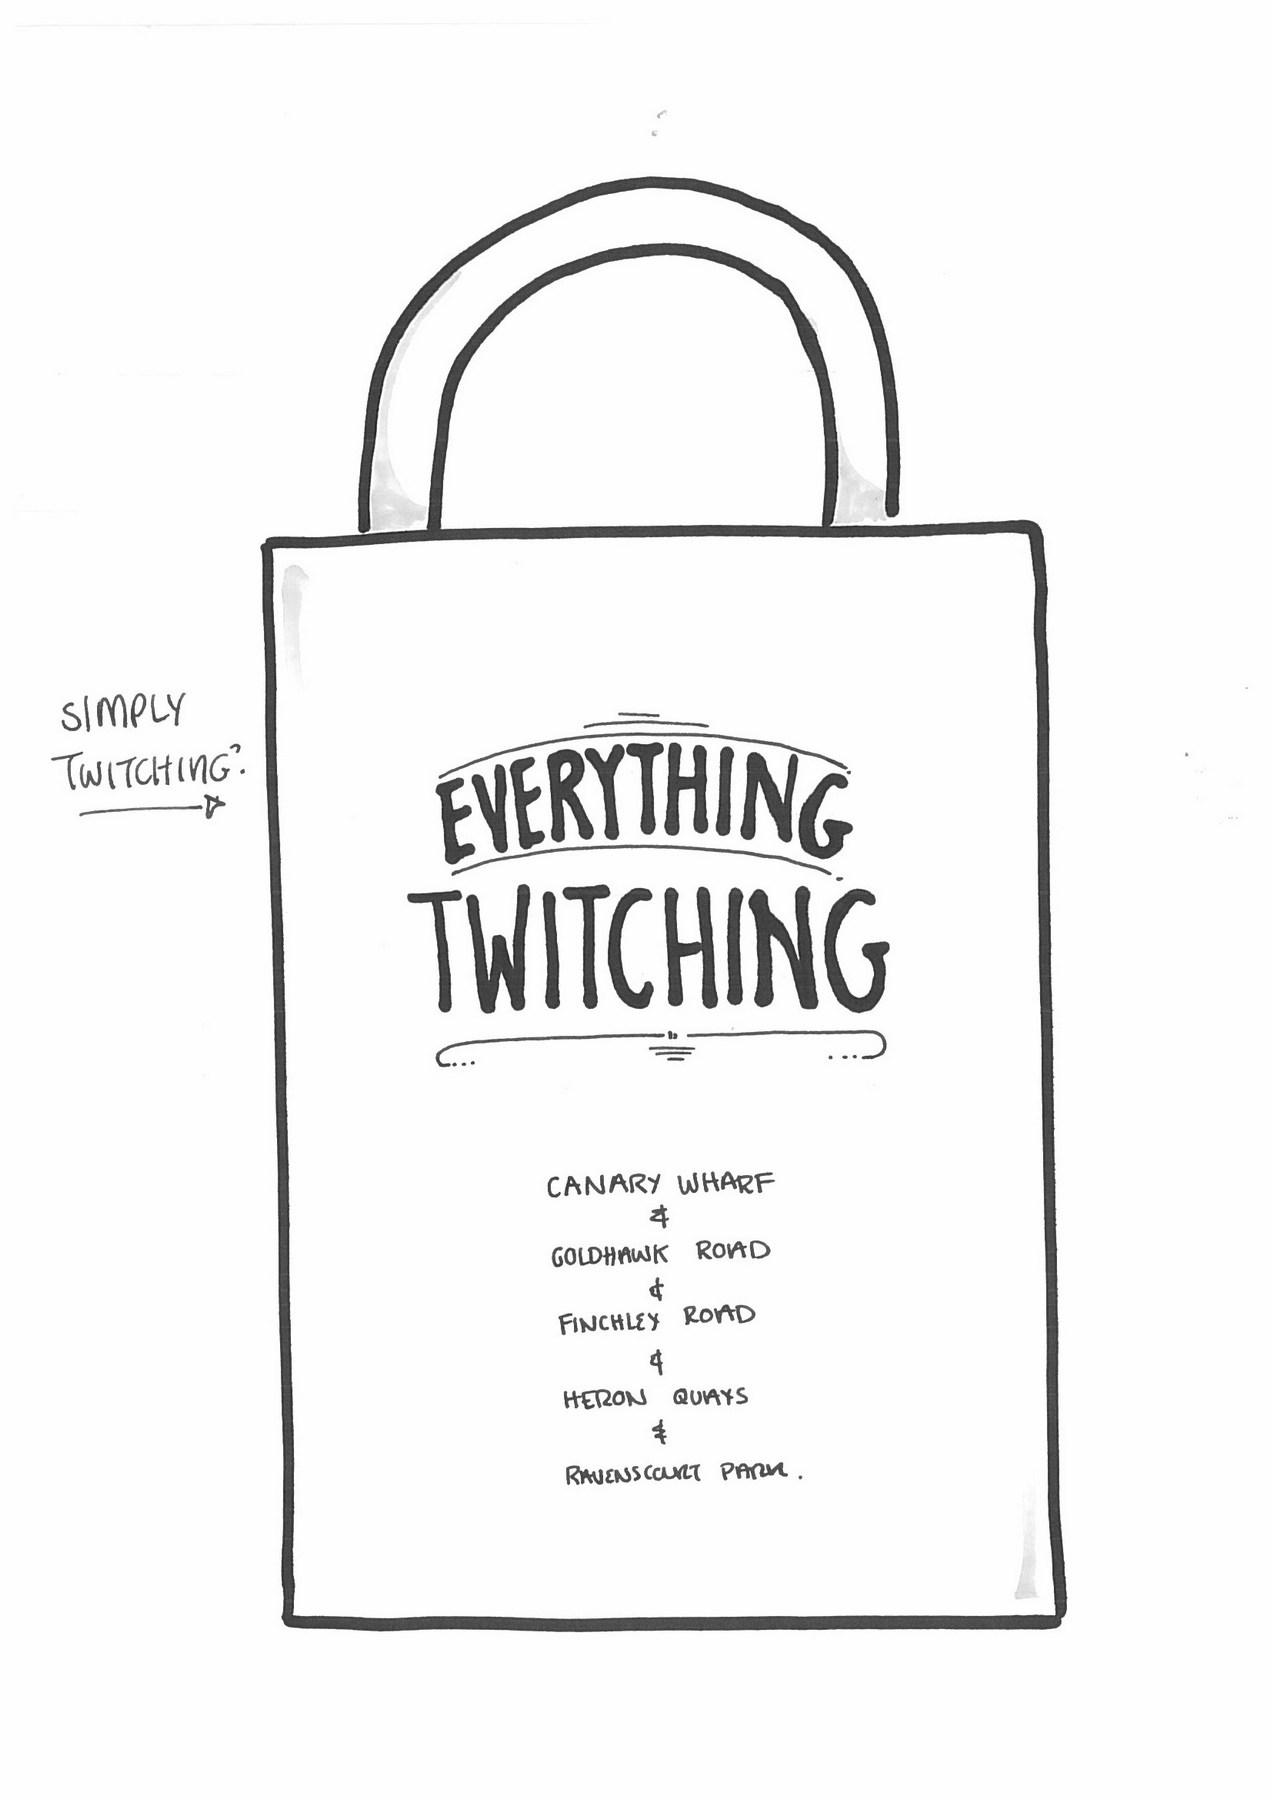 SIMPLY
TWITCHING?
EVERYTHING
TWITCHING
CANARY WHARF
&
GOLDHAWK ROAD
&
FINCHLEY ROAD
&
HERON QUAYS
&
RAVENSCOURT PARK.